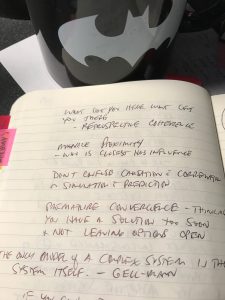 WHAT GOT YOU HERE WONT GET
YOU THERE
- RETROSPECTIVE COHERENCE
MANAGE PROXIMITY
- WHO IS CLOSEST HAS INFLUENCE
DON'T CONFUSE CAUSATION & CORRELATION
OR SIMULATION & PREDICTION
PREMATURE CONVERGENCE - THINKING
YOU HAVE A SOLUTION TOO SOON
& NOT LEAVING OPTIONS OPEN
THE ONLY MODEL OF A COMPLEX SYSTEM IS THE
SYSTEM ITSELF. - GELL-MANN
IF YOU